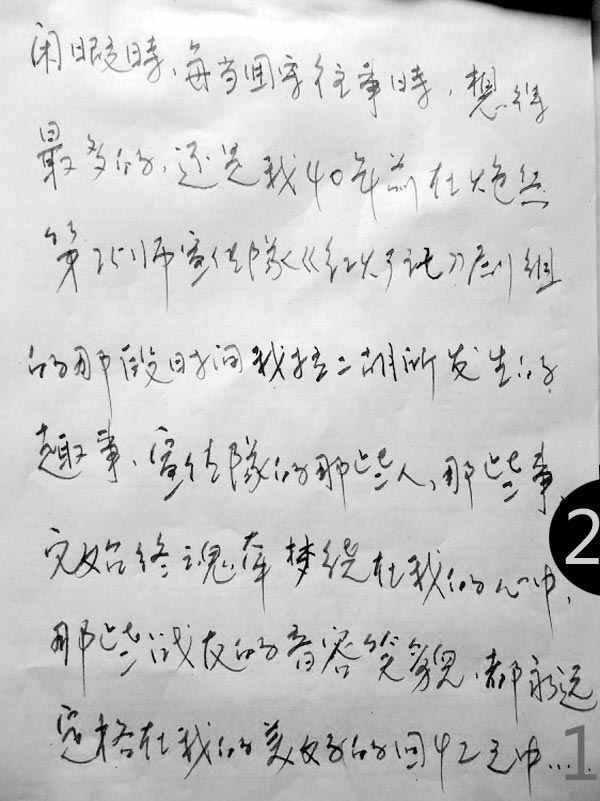 闲暇时，每当回容往事时，想得
最多的，还是我40年前在炮兵
第251师宣传队《红灯记》剧组
的那段时间我拉二胡所发生的
趣事，宣传队的那些人，那些事，
它始终魂牵梦绕在我的心中，
那些战友的音容笑貌，都永远
定格在我的美好的回忆之中……
2
1